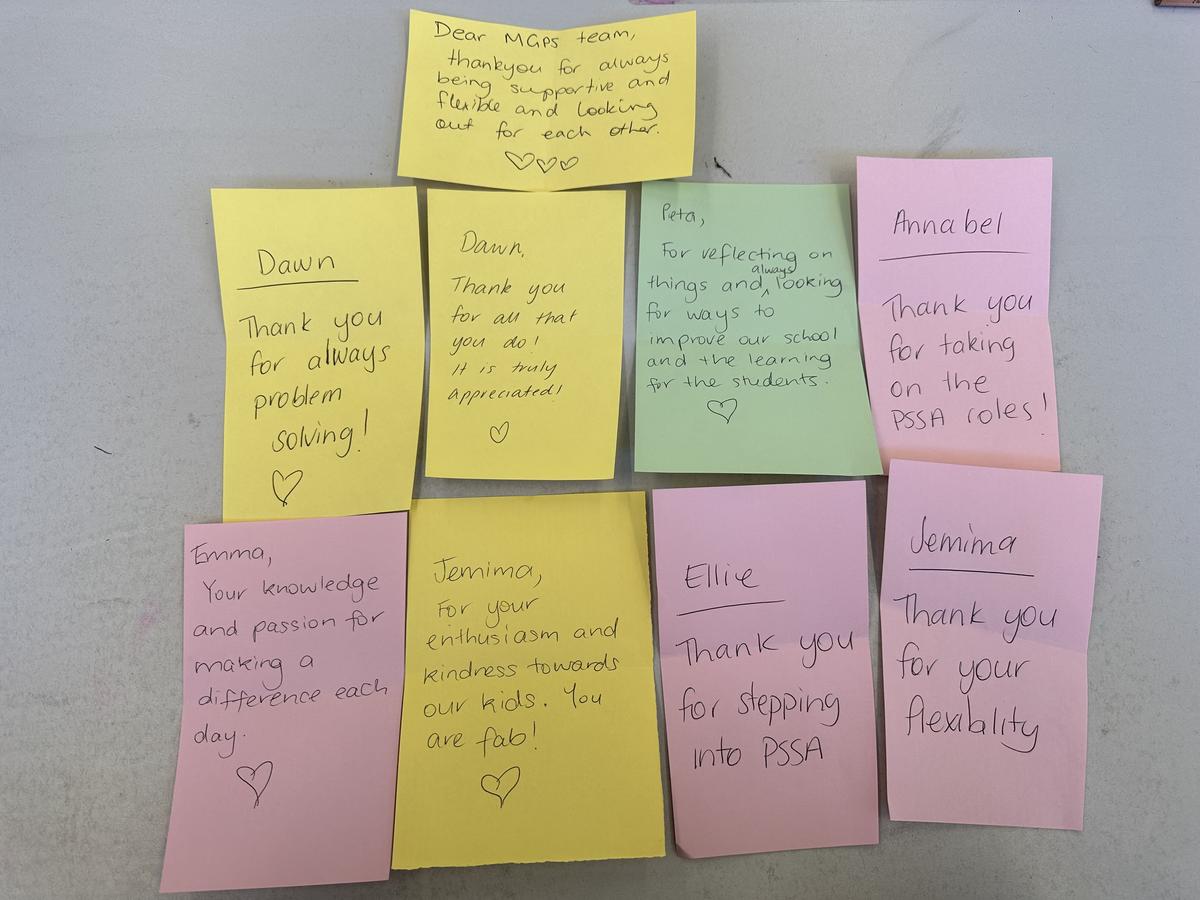 Dear MGPS team,
thankyou for always
being supportive and
flexible and looking
out for each other.
Dawn
Thank you
for always
problem
solving!
Dawn,
Thank you
for all that
you do!
It is truly
appreciated!
Peta,
For reflecting on
things and always looking
for ways to
improve our school
and the learning
for the students.
Annabel
Thank you
for taking
on the
PSSA roles!
Emma,
Your knowledge
and passion for
making a
difference each
day.
Jemima,
For your
enthusiasm and
kindness towards
our kids. You
are fab!
Ellie
Thank you
for stepping
into PSSA
Jemima
Thank you
for your
flexibality